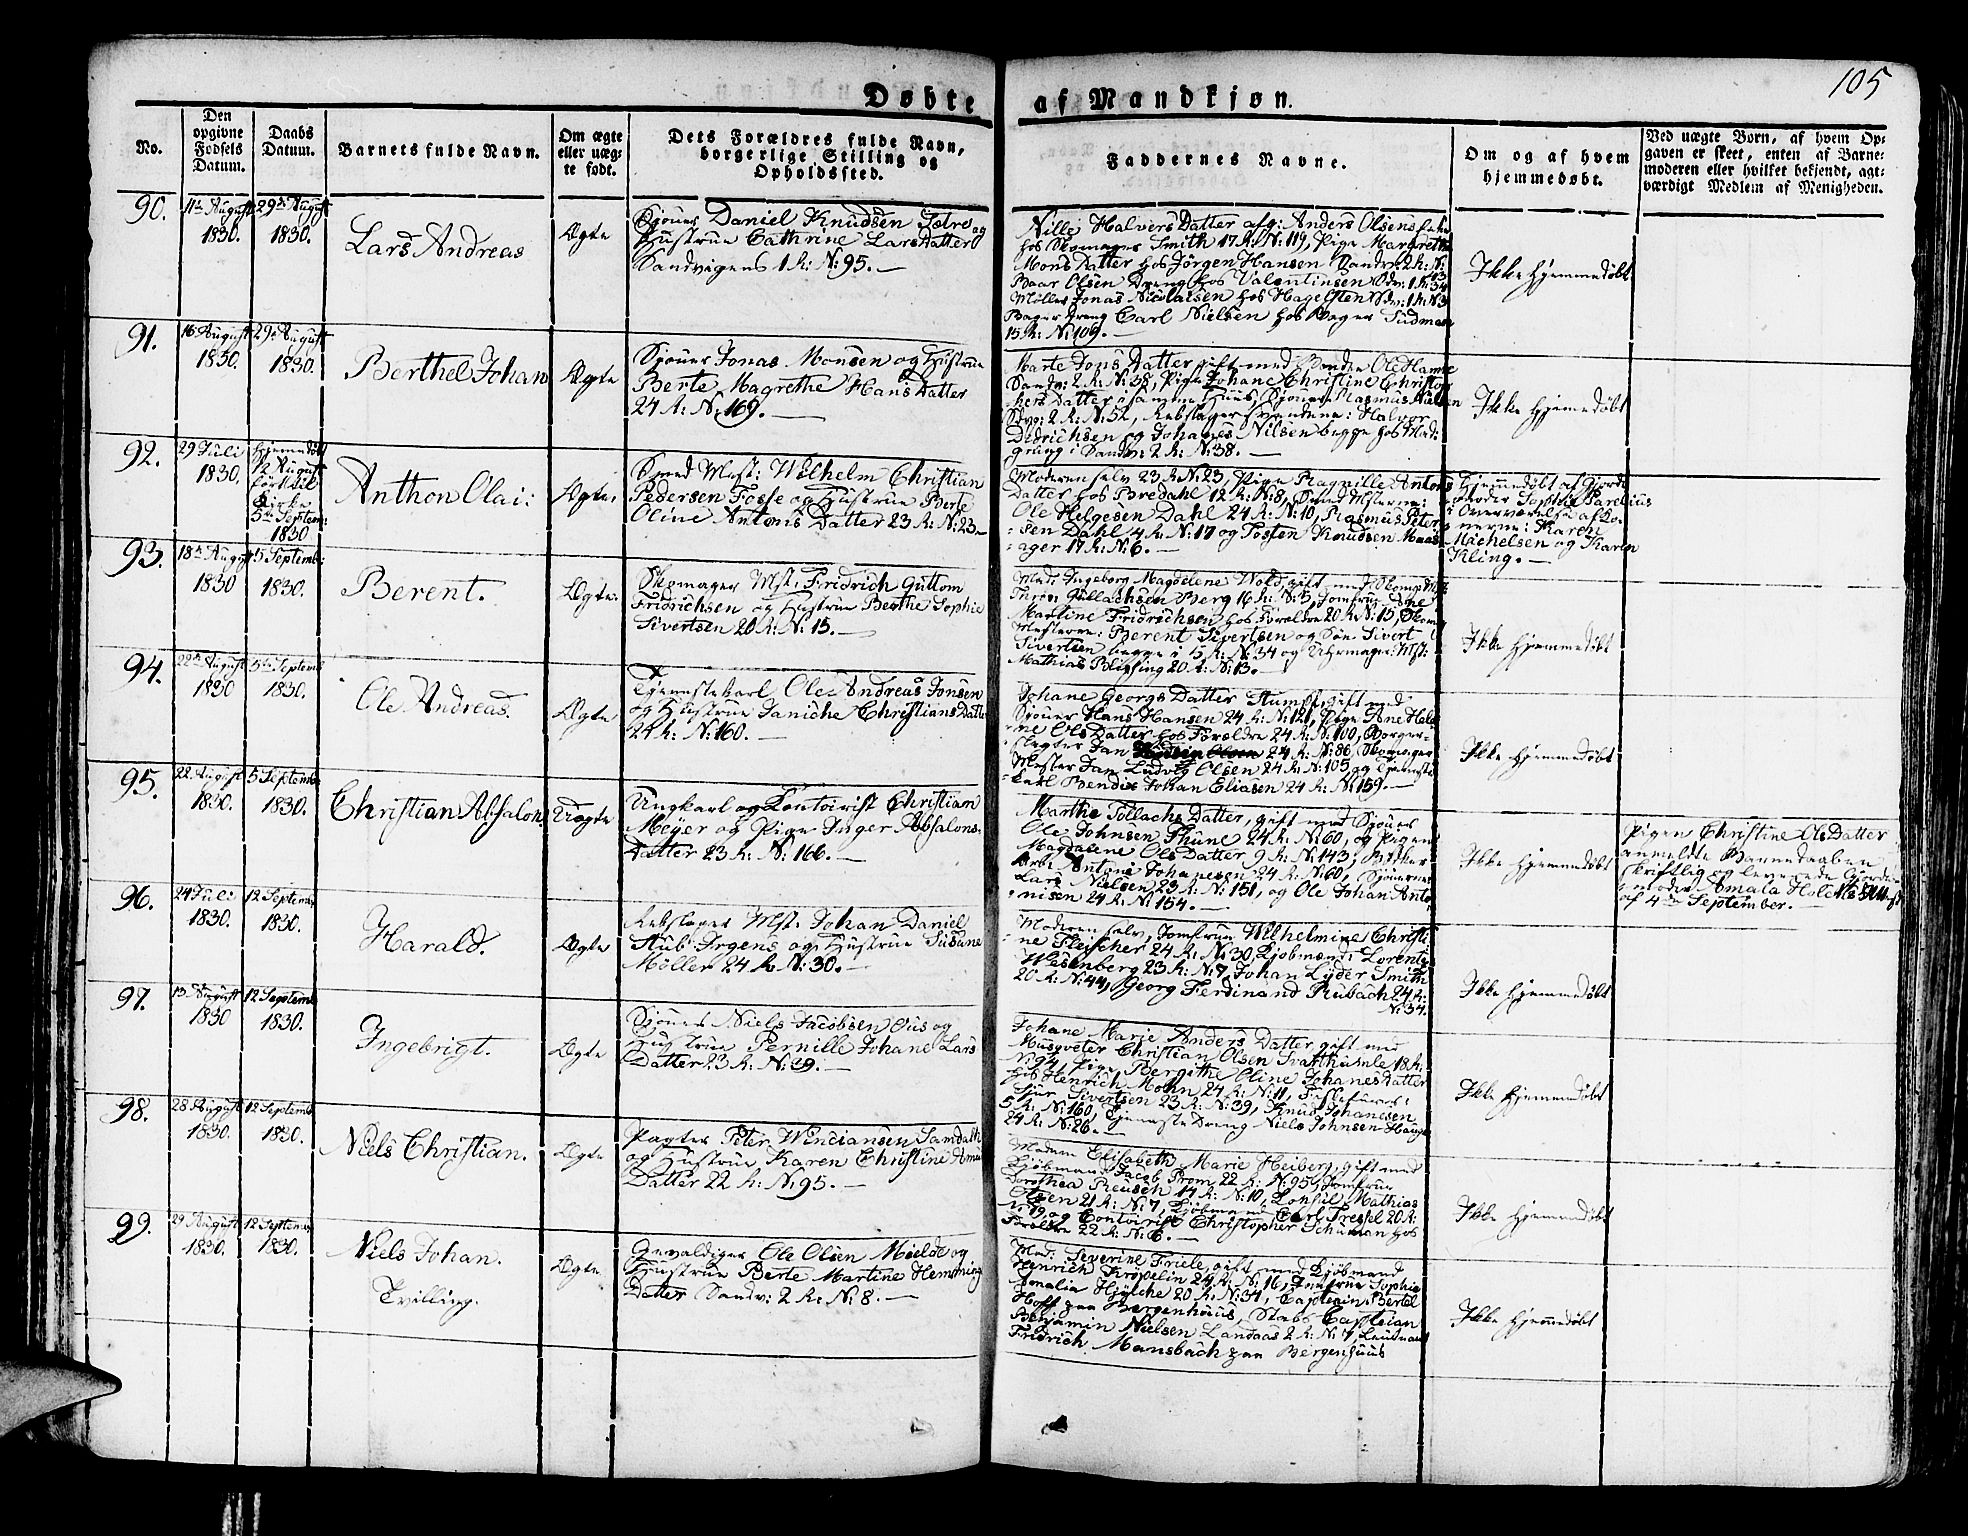 105
Døbte
af Mandkjøn.
No.
Den
opgivne
Fødsels
Datum.
Daabs
Datum.
Barnets fulde Navn.
Om ægte
eller uæg-
te født.
Dets Forældres fulde Navn,
borgerlige Stilling og
Opholdssted.
Faddernes Navne.
Om og af hvem
hjemmedøbt.
Ved uægte Børn, af hvem Op-
gaven er skeet, enten af Barne-
moderen eller hvilket bekjendt, agt-
værdigt Medlem af Menigheden.
90.
11te August
1830.
29de August
1830.
Lars Andreas
Ægte
Sjouer Daniel Knudsen Sætre og
Hustrue Cathrine Lars Datter
Sandvigens 1 R: N: 95.
Nille Halvers Datter afg: Anders Olsens
hos Skomager Smith 17 R: N: 119, Pige Margrethe
Mons Datter hos Jørgen Hansen Sandv: 2 R: N:
Baar Olsen Dreng hos Valentinsen Sdv: 1 R: 34
Møller Jonas Nicolaisen hos Hagelsten Sdv: 1 R: N3
Bager Dreng Carl Nielsen hos Bager Sudman
15 R: N: 109.
Ikke hjemmedøbt
91.
16 August
1830.
29de August
1830.
Berthel Johan
Ægte
Sjouer Jonas Monsen og Hustrue
Berte Magrethe Hans Datter
24 R: N: 169.
Marte Jons Datter gift med Bonden Ole Hamre
Sandv: 2 R: N: 38, Pige Johane Christine Christop
hers Datter i samme Huus, Sjouer Rasmus Nielsen
Sdvg: 2 R: N: 52, Rebslager Svendene: Halvor
Didrichsen og Johanes Nilsen begge hos Mad:
Grung i Sandv: 2 R: N: 38.
Ikke hjemmedøbt
92.
29 Juli
1830.
Hjemmedøbt
12 August
1830
Kirke
5te Septem:
1830
Anthon Olai:
Ægte.
Smed Mest: Wilhelm Christian
Pedersen Fosse og Hustrue Berte
Oline Antons Datter 23 R: N: 23.
Moderen selv 23 R: N 23, Pige Ragnille Antons
Datter hos Bredahl 12 R: N: 8, Smed Mesterne:
Ole Helgesen Dahl 24 R: N: 10, Rasmus Peter
sen Dahl 4 R: N: 17 og Tosten Knudsen
ager 17 R: N: 6.
Hjemmedøbt af Gjorde
moder Sophia Parelius
i Overværelse af Ko-
nerne: Karen
Michelsen og Karen
Kling.
93.
18de August
1830
5 Septembr
1830.
Berent.
Ægte.
Skomager Mst. Fridrich Guttom
Fridrichsen og Hustrue Berthe Sophie
Sivertsen 20 R: N: 15.
Mad: Ingeborg Magdelene Wold, gift med Skomag: Mst:
Berg 16 R: N: 5, Jomfrue Ane
Martine Fridrichsen hos Forældre 20 R: N: 15, Skom:
Mesterne: Berent Sivertsen og Søn Sivert
Sivertsen begge i 15 R: N: 34 og Uhrmager: Mst:
Mathias Blysing 20 R: N: 13.
Ikke hjemmedøbt
94.
22de August
1830
5te Septemb
1830.
Ole Andreas.
Ægte
Tjenestekarl Ole Andreas Jonsen
og Hustrue Janiche Christians Datter
24 R: N: 160.
Johane Georgs Datter Stumph, gift med
Sjouer Hans Hansen 24 R: N: 121, Pige Ane Hele
ne Ols Datter hos Forældre 24 R: N: 100, Borger-
slagter Jan 24 R: N: 86, Skomager
Mester Jan Ludvig Olsen 24 R: N: 105 og Tjeneste
karl Bendix Johan Eliasen 24 R: N: 159.
Ikke hjemmedøbt
95.
22 August
1830.
5 Septembr
1830.
Christian Absalon.
Uægte
Ungkarl og Contoirist Christian
Meyer og Pige Inger Absalons
Datter 23 R: N: 166.
Marthe Tollachs Datter, gift med Sjouer
Ole Johnsen Thune 24 R: N: 60, og Pigen
Magdalene Ols Datter 9 R: N: 143, Bødker
Antoni Johanesen 24 R: N: 60, Sjouerne
Lars Nielsen 23 R: N: 151, og Ole Johan Anto
nisen 24 R: N: 154.
Ikke hjemmedøbt
Pigen Christine Ols Datter
anmeldte Barnedaaben
skriftlig og leverede Gjorde
moder Amalia
af 4de September.
96.
24 Juli
1830.
12 Septemb
1830.
Harald.
Ægte
Rebslager Mst: Johan Daniel
Stub Irgens og Hustrue Susane
Møller 24 R: N: 30.
Moderen selv, Jomfrue Wilhelmine Christi
ne Fleischer 24 R: N: 30, Kjøbmænd: Lorentz
Wesenberg 23 R: N: 7, Johan Lyder Smith
20 R: N: 44, Georg Ferdinand Rubach 24 R:
N: 34.
Ikke hjemmedøbt
97.
13 August
1830
12 Septemb
1830.
Ingebrigt.
Ægte
Sjouer Niels Jacobsen Ous og
Hustrue Pernille Johane Lars
Datter 23 R: N: 39.
Johane Marie Anders Datter, gift med
Musqveter Christian Olsen Svarthumle 18 R:
N: 94, Pige Bergithe Oline Johanes Datter
hos Henrich Mohn 24 R: N: 11,
Sjur Sivertsen 23 R: N: 39, Knud Johanesen
5 R: N: 160, Tjeneste Dreng Niels Johnsen Hauge
24 R: N: 26.
Ikke hjemmedøbt
98.
28 August
1830.
12 Septemb
1830.
Niels Christian.
Ægte
Pagter Peter Winciansen Samdahl
og Hustrue Karen Christine Amun
Datter 22 R: N: 95.
Madam Elisabeth Marie Heiberg, gift med
Kjøbmand Jacob Prom 22 R: N: 95, Jomfrue
Dorothea Reusch 14 R: N: 10, Consul Mathias
Olsen 21 R: N: 7, Kjøbmand Carl Tressel 20 R:
N: 19, og Contoirist Christopher Schuman hos
22 R: N: 6.
Ikke hjemmedøbt
99.
29 August
1830.
12 Septemb
1830.
Niels Johan.
Tvilling.
Ægte
Gevaldiger Ole Olsen Mielde og
Hustrue Berte Martine Hemming
Datter Sandv: 2 R: N: 8.
Mad: Severine Friele, gift med Kjøbmand
Henrich Krøpelin 24 R: N: 16, Jomfrue Sophie
Amalia Hylche 20 R: N: 34, Captain: Bertel
Hoff paa Bergenhuus, Stabs Captaian
Benjamin Nielsen Landaas 2 R: N: 7, Leutnant
Fridrich Mansbach paa Bergenhuus
Ikke hjemmedøbt